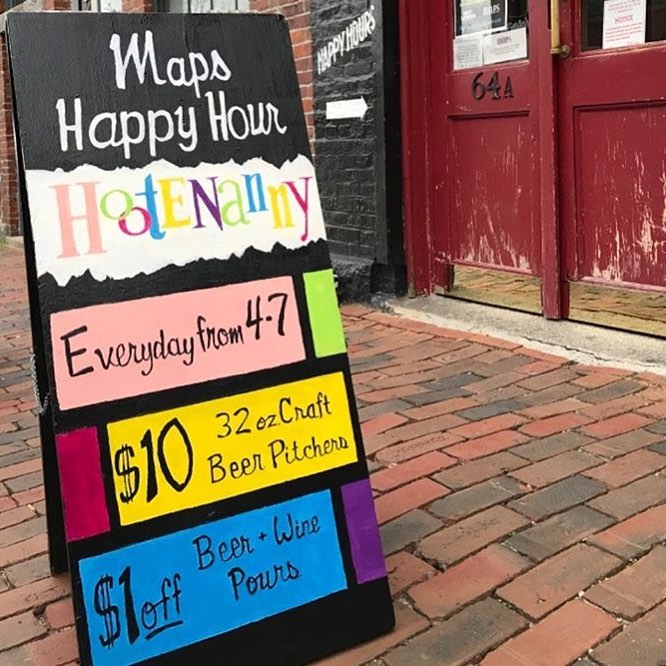 Maps
Happy Hour
HootENanny
Everyday from 4-7
$10 32 oz. Craft
Beer Pitchers
$1 off Beer + Wine
Pours
HAPPY HOURS
64A
NOTICE